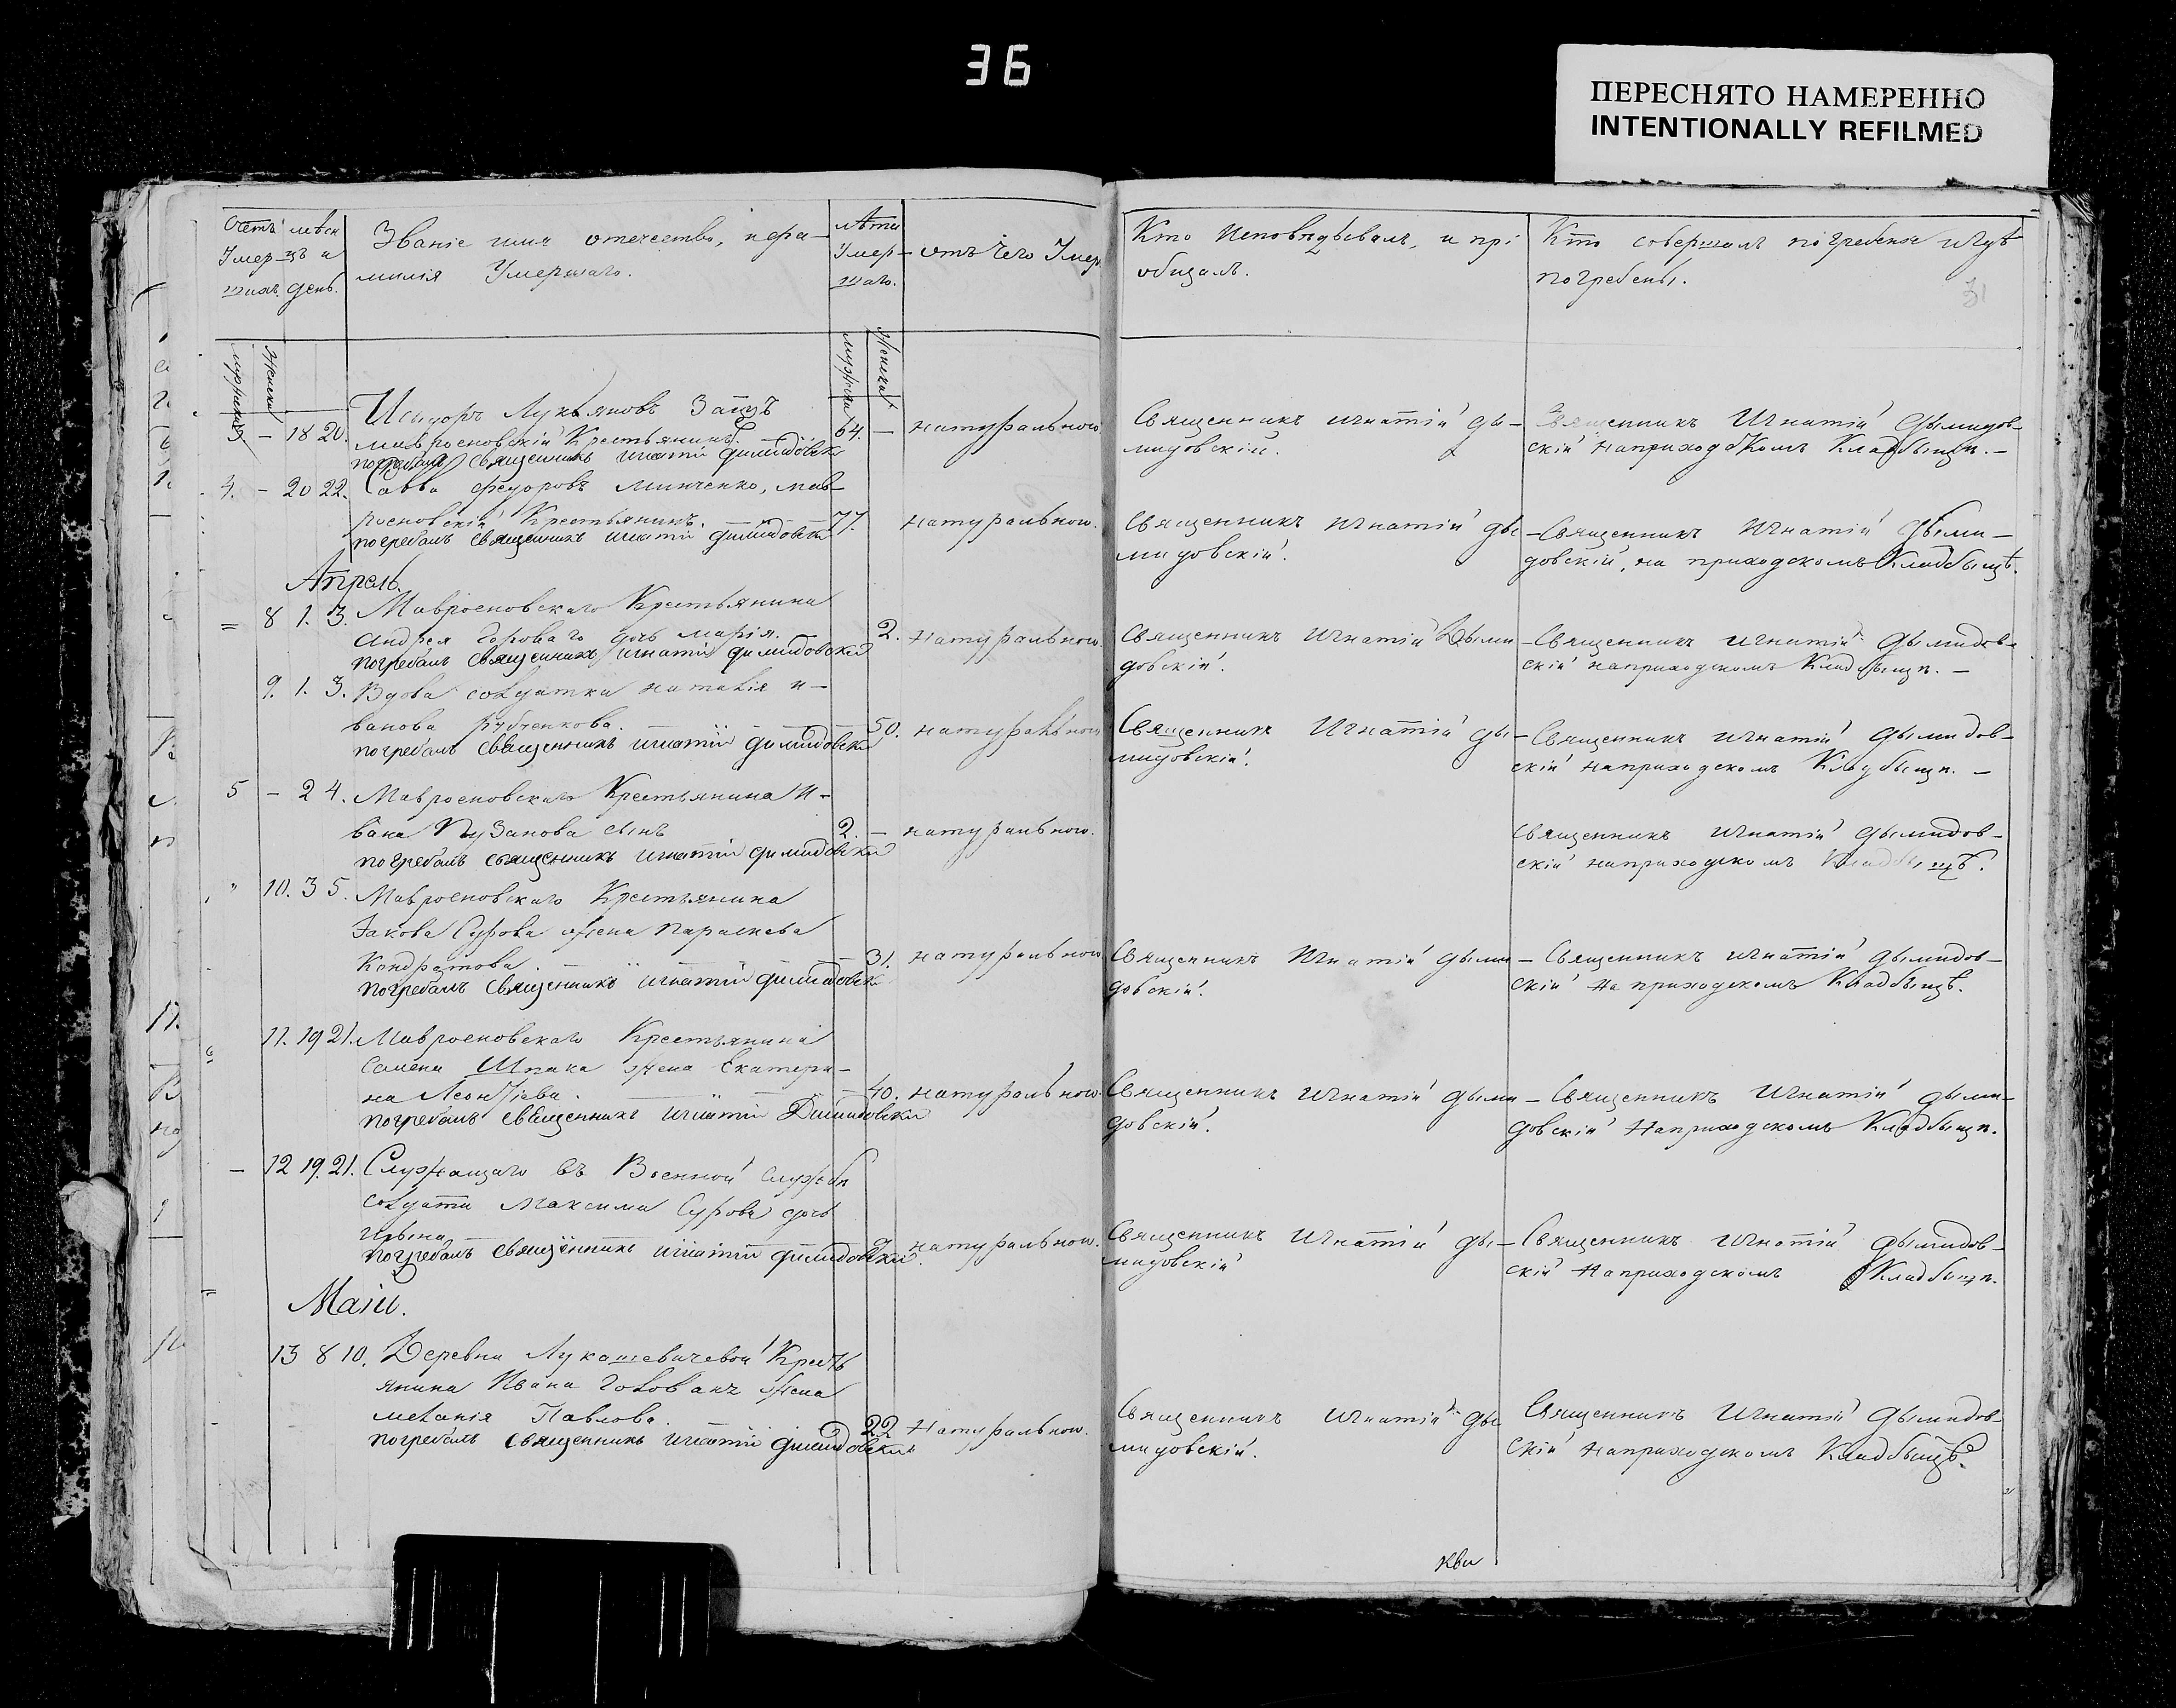 36
ПЕРЕСНЯТО НАМЕРЕННО
INTENTIONALLY REFILMED
Счетъ
Умер-
шихъ.
мѣся
цъ и
день.
Званіе имя отечество, и фа-
милія Умершаго.
лѣта
Умер-
шаго.
отъ чего Умер
Кто исповѣдывалъ, и прі
общалъ.
Кто совершалъ погребеніе и гдѣ
погребены.
31
мужеска
женска
мужеска
женска
3 - 18 20. Исидоръ Лукьяновъ Заецъ
мавроеновскій Крестьянинъ. 64. - натуральною
погребалъ священникъ игнатій димидовскі
Священникъ игнатій ды-
мидовскій.
Священникъ Игнатій Дымидов-
скій на приходскомъ Кладбыщи. -
4. - 20 22. Савва федоровъ минченко, мав-
роеновскій Крестьянинъ. 77. натуральною.
погребалъ священникъ игнатій димидовскі
Священникъ игнатій ды
мидовскій.
- Священникъ Игнатій Дыми-
довскій, на приходскомъ Кладбыщѣ.
Апрель.
= 8 1. 3. Мавроеновскаго Крестьянина
андрея Гороваго дочь марія. 2. натуральною
погребалъ священникъ игнатій димидовскій
Священникъ Игнатій Дыми
довскій.
- Священникъ игнатій дымидов-
скій на приходскомъ Кладбыщи. -
9. 1. 3. Вдова солдатка наталія и-
ванова рубченкова. 50. натуральною
погребалъ священникъ игнатій димидовскій
Священникъ Игнатій ды
мидовскій.
- Священникъ игнатій дымидов-
скій на приходскомъ Кладбыщи. -
5 - 2 4. Мавроеновскаго Крестьянина И-
вана Пузанова сынъ 2. - натуральною.
погребалъ священникъ игнатій димидовскій
священникъ игнатій дымидов-
скій на приходскомъ Кладбыщѣ.
" 10. 3 5. Мавроеновскаго Крестьянина
Іакова Сурова жена Параскева
Кондратова. 31. натуральною
погребалъ священникъ игнатій димидовскі
Священникъ Игнатій дыми
довскій.
- Священникъ игнатій дымидов-
скій на приходскомъ Кладбыщѣ.
11. 19 21. Мавроеновскаго Крестьянина
Семена Шпака жена Екатери-
на Леонтіева. 40. натуральною
погребалъ священникъ игнатій Димидовскій
Священникъ игнатій дыми
довскій.
- Священникъ Игнатій дыми-
довскій на приходскомъ Кладбыщи.
- 12 19. 21. Служащаго въ Военной службѣ
солдата Максима Сурова дочь
натуральною.
погребалъ священникъ игнатій димидовскій.
Священникъ Игнатій ды
мидовскій
- Священникъ Игнатій дымидов-
скій на приходскомъ Кладбыщи.
Маій.
13 8 10. Деревни Лукашевичевой Крест
янина Ивана Голованъ жена
меланія Павлова. 22 натуральною.
погребалъ священникъ игнатій димидовскій
Священникъ игнатій ды
мидовскій.
Священникъ Игнатій Дымидов-
скій на приходскомъ Кладбыщѣ.